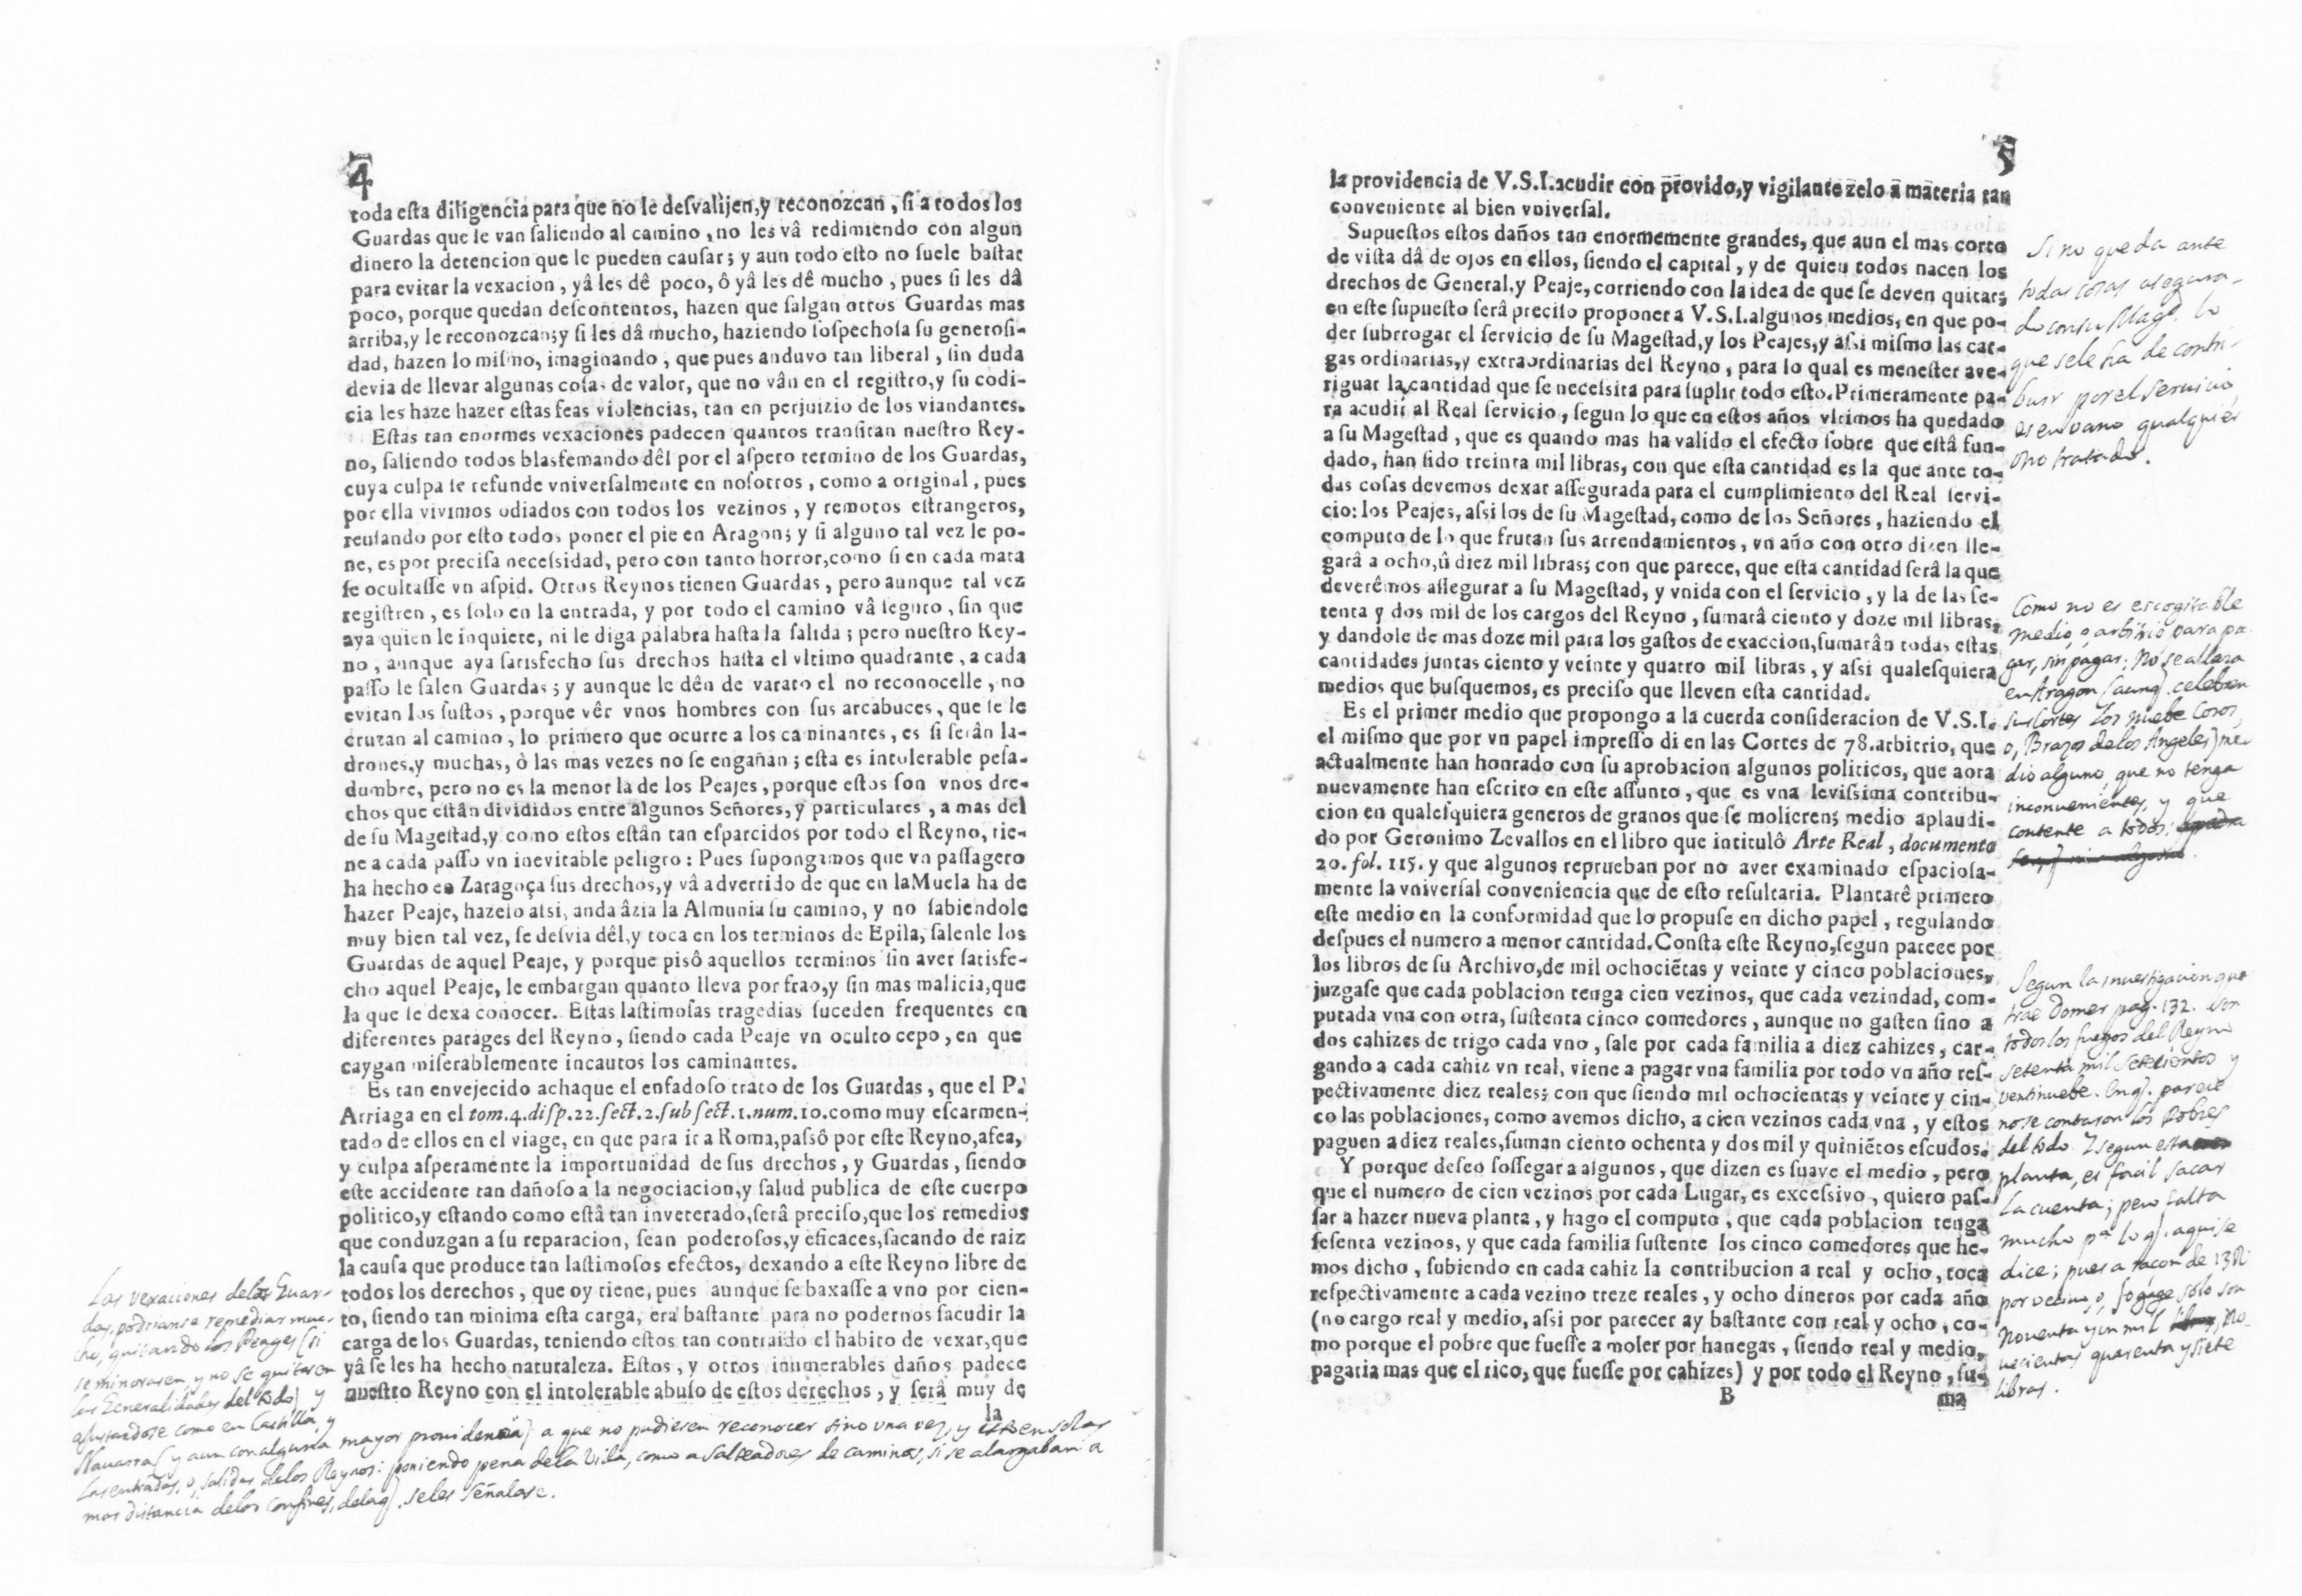 4
toda esta diligencia para que no le desvalijen, y reconozcan, si a todos los
Guardas que le van saliendo al camino, no les vâ redimiendo con algun
dinero la detencion que le pueden causar; y aun todo esto no suele bastar
para evitar la vexacion, yâ les dê poco, ô yâ les dê mucho, pues si les dâ
poco, porque quedan descontentos, hazen que salgan otros Guardas mas
arriba, y le reconozcan; y si les dâ mucho, haziendo sospechosa su generosi-
dad, hazen lo mismo, imaginando, que pues anduvo tan liberal, sin duda
devia de llevar algunas cosas de valor, que no vân en el registro, y su codi-
cia les haze hazer estas feas violencias, tan en perjuizio de los viandantes.
Estas tan enormes vexaciones padecen quantos transitan nuestro Rey-
no, saliendo todos blasfemando dêl por el aspero termino de los Guardas,
cuya culpa se refunde vniversalmente en nosotros, como a original, pues
por ella vivimos odiados con todos los vezinos, y remotos estrangeros,
reusando por esto todos poner el pie en Aragon; y si alguno tal vez le po-
ne, es por precisa necessidad, pero con tanto horror, como si en cada mata
se ocultasse vn aspid. Otros Reynos tienen Guardas, pero aunque tal vez
registren, es solo en la entrada, y por todo el camino vâ seguro, sin que
aya quien le inquiete, ni le diga palabra hasta la salida; pero nuestro Rey-
no, aunque aya satisfecho sus drechos hasta el vltimo quadrante, a cada
passo le salen Guardas; y aunque le dên de varato el no reconocelle, no
evitan los sustos, porque vêr vnos hombres con sus arcabuces, que se le
cruzan al camino, lo primero que ocurre a los caminantes, es si serân la-
drones, y muchas, ò las mas vezes no se engañan; esta es intolerable pesa-
dumbre, pero no es la menor la de los Peajes, porque estos son vnos dre-
chos que estân divididos entre algunos Señores, y particulares, a mas del
de su Magestad, y como estos estân tan esparcidos por todo el Reyno, tie-
ne a cada passo vn inevitable peligro: Pues supongamos que vn passagero
ha hecho en Zaragoça sus drechos, y vâ advertido de que en la Muela ha de
hazer Peaje, hazelo assi, anda âzia la Almunia su camino, y no sabiendole
muy bien tal vez, se desvia dêl, y toca en los terminos de Epila, salenle los
Guardas de aquel Peaje, y porque pisô aquellos terminos sin aver satisfe-
cho aquel Peaje, le embargan quanto lleva por frao, y sin mas malicia, que
la que se dexa conocer. Estas lastimosas tragedias suceden frequentes en
diferentes parages del Reyno, siendo cada Peaje vn oculto cepo, en que
caygan miserablemente incautos los caminantes.
Es tan envejecido achaque el enfadoso trato de los Guardas, que el P.
Arriaga en el tom. 4. disp. 22. sect. 2. subsect. 1. num. 10. como muy escarmen-
tado de ellos en el viage, en que para ir a Roma, passô por este Reyno, afea,
y culpa asperamente la importunidad de sus drechos, y Guardas, siendo
este accidente tan dañoso a la negociacion, y salud publica de este cuerpo
politico, y estando como estâ tan inveterado, serâ preciso, que los remedios
que conduzgan a su reparacion, sean poderosos, y eficaces, sacando de raiz
la causa que produce tan lastimosos efectos, dexando a este Reyno libre de
todos los derechos, que oy tiene, pues aunque se baxasse a vno por cien-
to, siendo tan minima esta carga, era bastante para no podernos sacudir la
carga de los Guardas, teniendo estos tan contraido el habito de vexar, que
yâ se les ha hecho naturaleza. Estos, y otros inumerables daños padece
nuestro Reyno con el intolerable abuso de estos derechos, y serâ muy de
la
Las vexaciones de las Guar-
das, podrianse remediar mu-
cho, quitando los Peages (si
se minorasen y no se quitasen
las Generalidades del todo) y
ajustandose como en Castilla, y
Navarra (y aun con alguna mayor providencia) a que no pudiesen reconocer sino una vez, y en solas
las entradas, o, salidas de los Reynos: poniendo pena de la vida, como a salteadores de caminos, si se alargaban a
mas distancia de los confines, de la q. se les señalase.
5
la providencia de V.S.I. acudir con provido, y vigilante zelo a materia tan
conveniente al bien vniversal.
Supuestos estos daños tan enormemente grandes, que aun el mas corto
de vista dâ de ojos en ellos, siendo el capital, y de quien todos nacen los
drechos de General, y Peaje, corriendo con la idea de que se deven quitar;
en este supuesto serâ preciso proponer a V.S.I. algunos medios, en que po-
der subrrogar el servicio de su Magestad, y los Peajes, y assi mismo las car-
gas ordinarias, y extraordinarias del Reyno, para lo qual es menester ave-
riguar la cantidad que se necessita para suplir todo esto. Primeramente pa-
ra acudir al Real servicio, segun lo que en estos años vltimos ha quedado
a su Magestad, que es quando mas ha valido el efecto sobre que estâ fun-
dado, han sido treinta mil libras, con que esta cantidad es la que ante to-
das cosas devemos dexar assegurada para el cumplimiento del Real servi-
cio: los Peajes, assi los de su Magestad, como de los Señores, haziendo el
computo de lo que frutan sus arrendamientos, vn año con otro dizen lle-
garâ a ocho, û diez mil libras; con que parece, que esta cantidad serâ la que
deverêmos assegurar a su Magestad, y vnida con el servicio, y la de las se-
tenta y dos mil de los cargos del Reyno, sumarâ ciento y doze mil libras,
y dandole de mas doze mil para los gastos de exaccion, sumarân todas estas
cantidades juntas ciento y veinte y quatro mil libras, y assi qualesquiera
medios que busquemos, es preciso que lleven esta cantidad.
Es el primer medio que propongo a la cuerda consideracion de V.S.I.
el mismo que por vn papel impresso di en las Cortes de 78. arbitrio, que
actualmente han honrado con su aprobacion algunos politicos, que aora
nuevamente han escrito en este assunto, que es vna levissima contribu-
cion en qualesquiera generos de granos que se molieren; medio aplaudi-
do por Geronimo Zevallos en el libro que intitulô Arte Real, documento
20. fol. 115. y que algunos reprueban por no aver examinado espaciosa-
mente la vniversal conveniencia que de esto resultaria. Plantarê primero
este medio en la conformidad que lo propuse en dicho papel, regulando
despues el numero a menor cantidad. Consta este Reyno, segun parece por
los libros de su Archivo, de mil ochociẽtas y veinte y cinco poblaciones,
juzgase que cada poblacion tenga cien vezinos, que cada vezindad, com-
putada vna con otra, sustenta cinco comedores, aunque no gasten sino a
dos cahizes de trigo cada vno, sale por cada familia a diez cahizes, car-
gando a cada cahiz vn real, viene a pagar vna familia por todo vn año res-
pectivamente diez reales; con que siendo mil ochocientas y veinte y cin-
co las poblaciones, como avemos dicho, a cien vezinos cada vna, y estos
paguen a diez reales, suman ciento ochenta y dos mil y quiniẽtos escudos.
Y porque deseo sossegar a algunos, que dizen es suave el medio, pero
que el numero de cien vezinos por cada Lugar, es excessivo, quiero pas-
sar a hazer nueva planta, y hago el computo, que cada poblacion tenga
sesenta vezinos, y que cada familia sustente los cinco comedores que he-
mos dicho, subiendo en cada cahiz la contribucion a real y ocho, toca
respectivamente a cada vezino treze reales, y ocho dineros por cada año
(no cargo real y medio, assi por parecer ay bastante con real y ocho, co-
mo porque el pobre que fuesse a moler por hanegas, siendo real y medio,
pagaria mas que el rico, que fuesse por cahizes) y por todo el Reyno, su-
B
ma
Si no queda ante
todas cosas asegura-
do con su Magd. lo
que se le ha de contri-
buir por el servicio
es en vano qualquier
otro tratado.
Como no es escogitable
medio, o arbitrio para pa-
gar, sin pagar; No se allara
en Aragon (aunq. celebren
sus Cortes los nuebe Coros,
o, Brazos de los Angeles) me-
dio alguno, que no tenga
inconvenientes, y que
contente a todos.
Segun la investigacion que
trae Domer pag. 132. son
todos los fuegos del Reyno
setenta mil setecientos y
veintinuebe. Enq. parece
no se contaron los Pobres
del todo. Y segun esta
planta, es facil sacar
la cuenta; pero falta
mucho pa. lo q. aqui se
dice; pues a racon de 13 R
por vecino, o, fogage solo son
noventa y un mil, no-
vecientas quarenta y siete
libras.